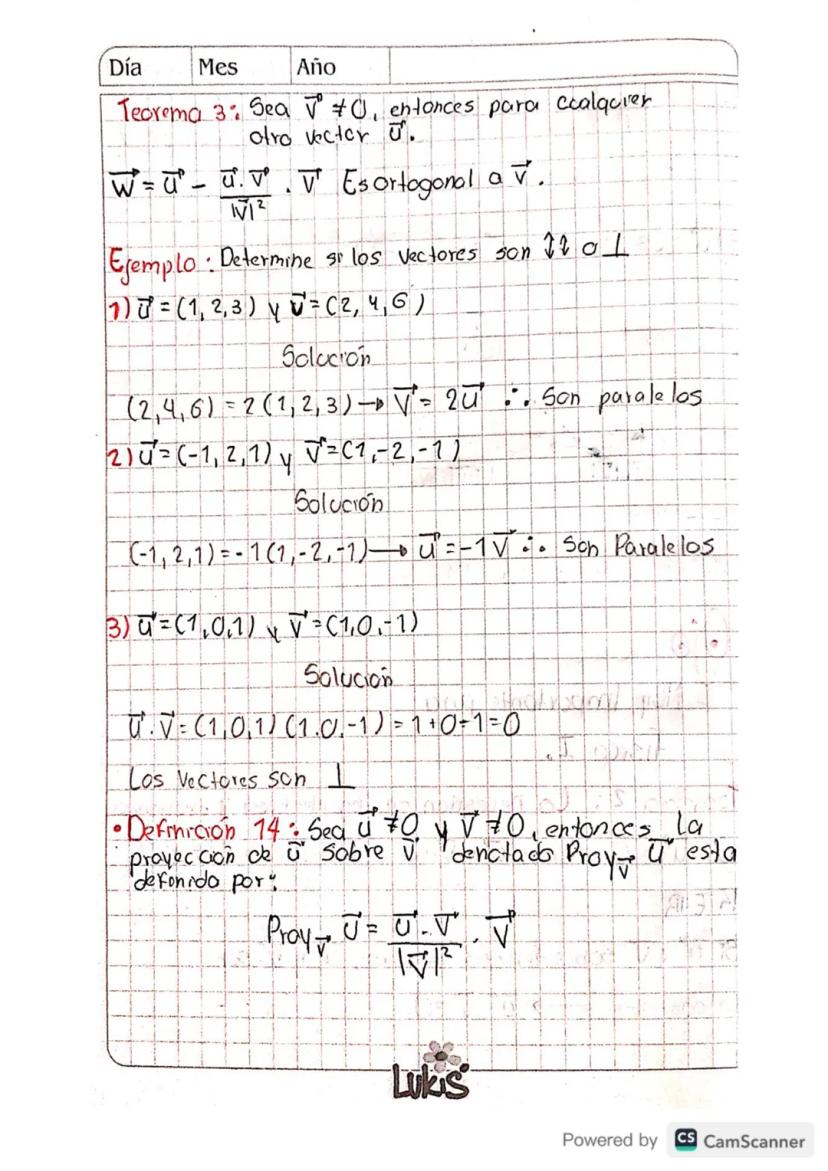 Día Mes Año
Teorema 3: Sea v⃗ ≠ 0, entonces para ccalquier
otro vector u⃗.
w⃗ = u⃗ - (u⃗ . v⃗)/|v⃗|² . v⃗ Es ortogonal a v⃗.
Ejemplo: Determine si los vectores son ↕↕ o ⊥
1) u⃗ = (1, 2, 3) y v⃗ = (2, 4, 6)
Solución
(2, 4, 6) = 2 (1, 2, 3) → v⃗ = 2u⃗ ∴ Son paralelos
2) u⃗ = (-1, 2, 1) y v⃗ = (1, -2, -1)
Solución
(-1, 2, 1) = -1 (1, -2, -1) → u⃗ = -1v⃗ ∴ Son Paralelos
3) u⃗ = (1, 0, 1) y v⃗ = (1, 0, -1)
Solución
u⃗ . v⃗ = (1, 0, 1) (1, 0, -1) = 1 + 0 ÷ 1 = 0
Los Vectores son ⊥
• Definición 14: Sea u⃗ ≠ 0 y v⃗ ≠ 0, entonces la
proyección de u⃗ sobre v⃗ denotado Proy v⃗ u⃗ esta
defonido por:
Proy v⃗ u⃗ = (u⃗ . v⃗)/|v⃗|² . v⃗
Lukis
Powered by CS CamScanner